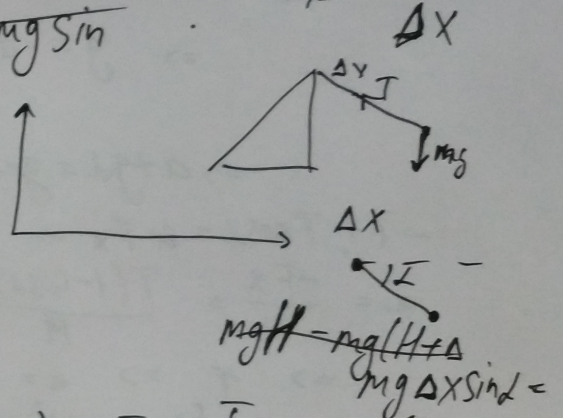 mg sin
ΔX
ΔY
mg
ΔX
mgH - mg(H+Δ
mgΔXsinα=